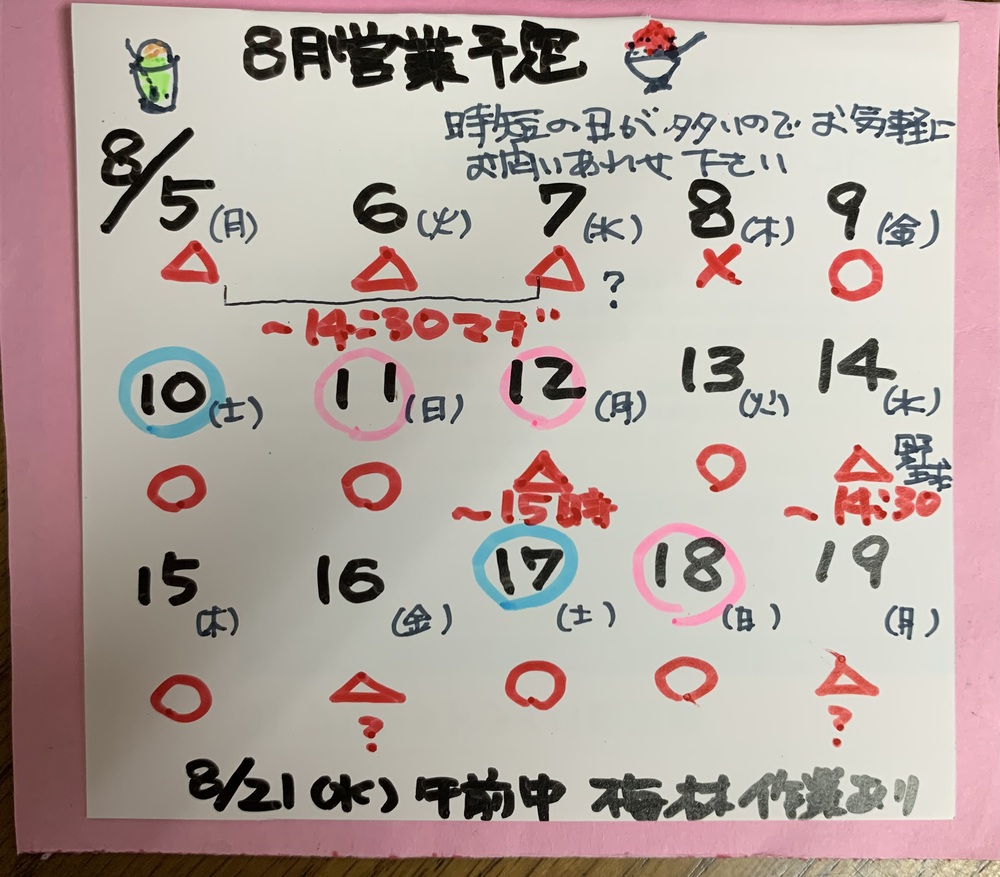 8月営業予定
時短の日が多いのでお気軽に
お問いあわせ下さい
8/5(月) 6(火) 7(水) 8(木) 9(金)
△ △ △ ? × ○
~14:30マデ
10(土) 11(日) 12(月) 13(火) 14(水)
○ ○ △ ○ △ 野球
~15時 ~14:30
15(木) 16(金) 17(土) 18(日) 19(月)
○ △ ○ ○ △
? ?
8/21(水) 午前中 梅林作業あり